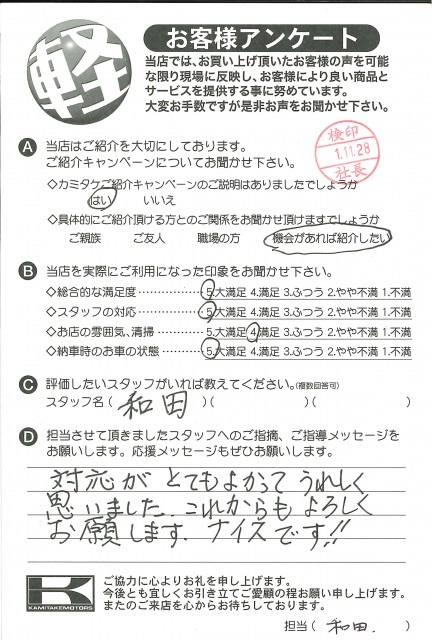 軽
お客様アンケート
当店では、お買い上げ頂いたお客様の声を可能
な限り現場に反映し、お客様により良い商品と
サービスを提供する事に努めています。
大変お手数ですが是非お声をお聞かせ下さい。
A 当店はご紹介を大切にしております。
ご紹介キャンペーンについてお聞かせ下さい。
検印
1.11.28
社長
◇カミタケご紹介キャンペーンのご説明はありましたでしょうか
はい いいえ
◇具体的にご紹介頂ける方とのご関係をお聞かせ頂けますでしょうか
ご親族 ご友人 職場の方 機会があれば紹介したい
B 当店を実際にご利用になった印象をお聞かせ下さい。
◇総合的な満足度 ……………… 5.大満足 4.満足 3.ふつう 2.やや不満 1.不満
◇スタッフの対応 ……………… 5.大満足 4.満足 3.ふつう 2.やや不満 1.不満
◇お店の雰囲気、清掃 ………… 5.大満足 4.満足 3.ふつう 2.やや不満 1.不満
◇納車時のお車の状態 ………… 5.大満足 4.満足 3.ふつう 2.やや不満 1.不満
C 評価したいスタッフがいれば教えてください。(複数回答可)
スタッフ名( 和田 )( )( )
D 担当させて頂きましたスタッフへのご指摘、ご指導メッセージを
お願いします。応援メッセージもぜひお願いします。
対応が とてもよかってうれしく
思いました.これからもよろしく
お願します. ナイスです!!
K
KAMITAKEMOTORS
ご協力に心よりお礼を申し上げます。
今後とも宜しくお引き立てご愛顧の程お願い申し上げます。
またのご来店を心からお待ちしております。
担当( 和田. )